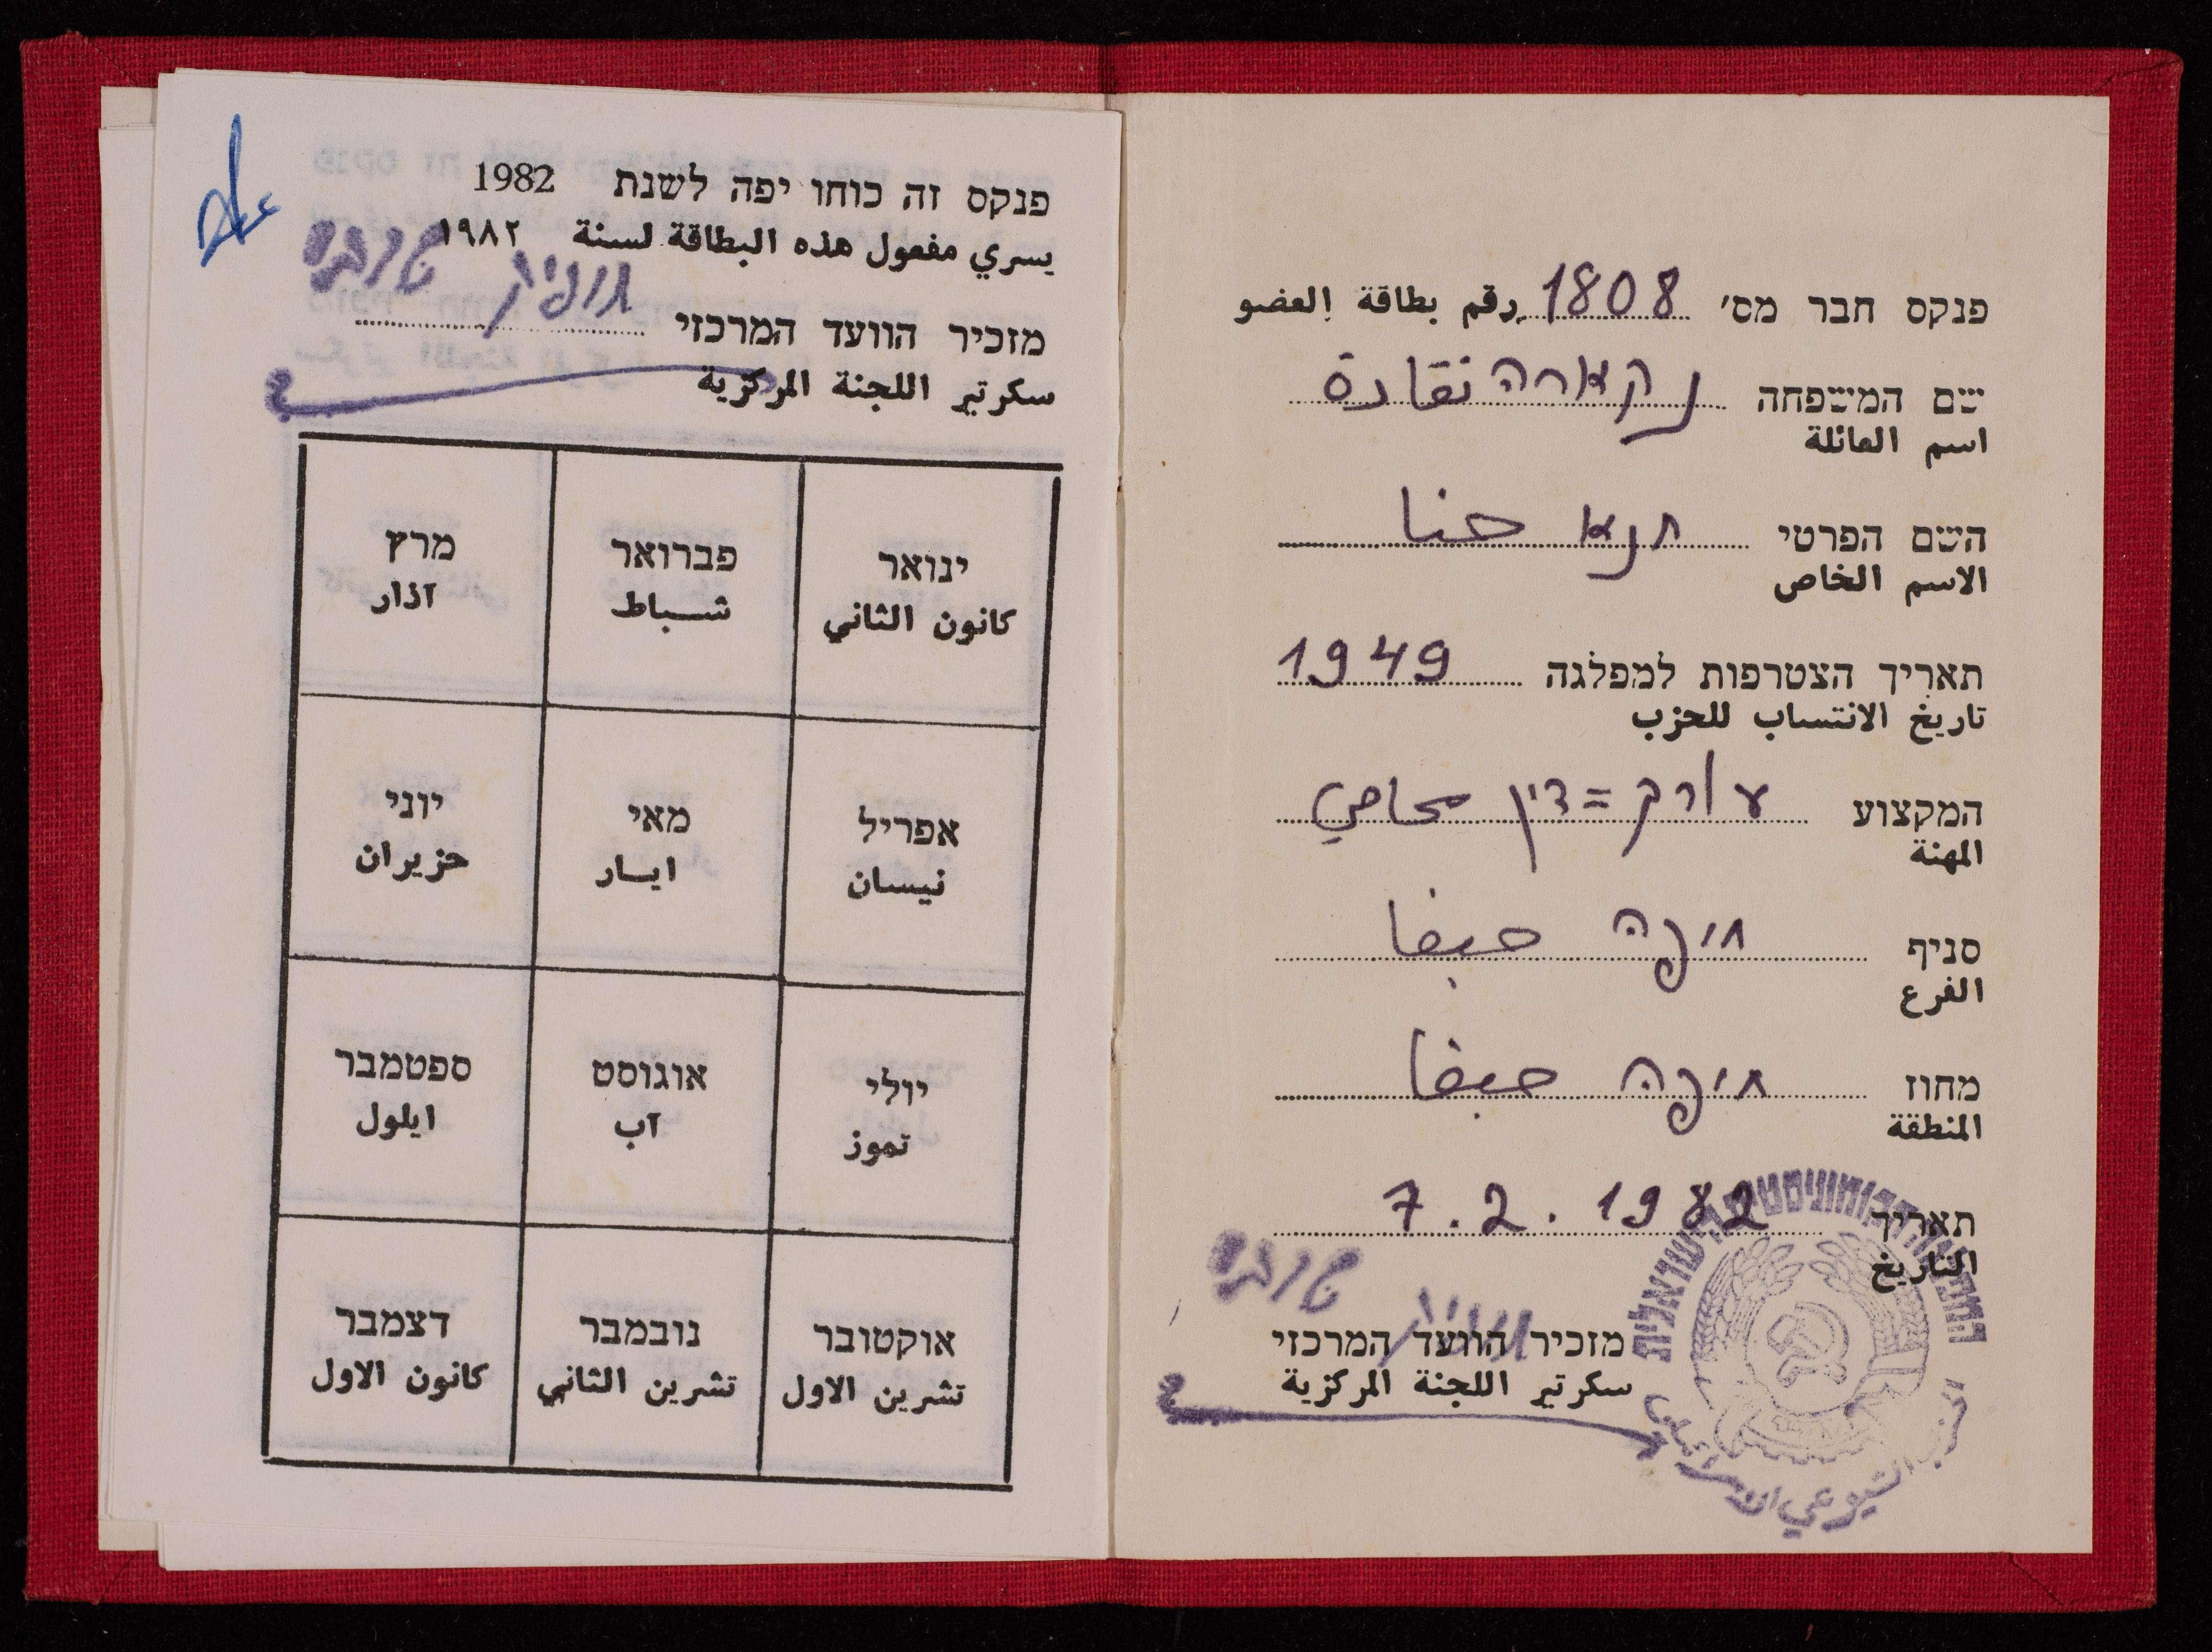 פנקס חבר מס' 1808 رقم بطاقة العضو
שם המשפחה נקארה نقارة
اسم العائلة
השם הפרטי חנא حنا
الاسم الخاص
תאריך הצטרפות למפלגה 1949
تاريخ الانتساب للحزب
המקצוע עורק=דין محامي
المهنة
סניף חיפה حيفا
الفرع
מחוז חיפה حيفا
المنطقة
תאריך 7.2.1982
التاريخ
מזכיר הוועד המרכזי תופיק טובי
سكرتير اللجنة المركزية
המפלגה הקומוניסטית הישראלית
الحزب الشيوعي الاسرائيلي
פנקס זה כוחו יפה לשנת 1982
يسري مفعول هذه البطاقة لسنة ١٩٨٢
מזכיר הוועד המרכזי תופיק טובי
سكرتير اللجنة المركزية
ינואר פברואר מרץ
كانون الثاني شباط آذار
אפריל מאי יוני
نيسان ايار حزيران
יולי אוגוסט ספטמבר
تموز آب ايلول
אוקטובר נובמבר דצמבר
تشرين الاول تشرين الثاني كانون الاول